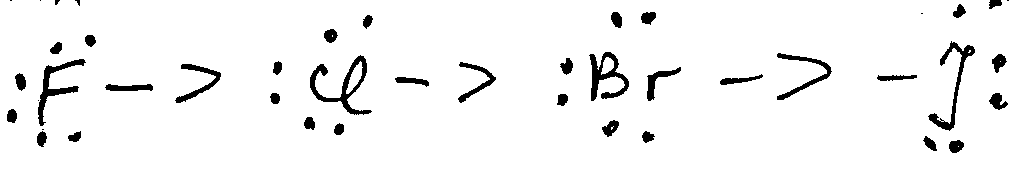 :F̈ -> :Cl -> :Br -> -J: